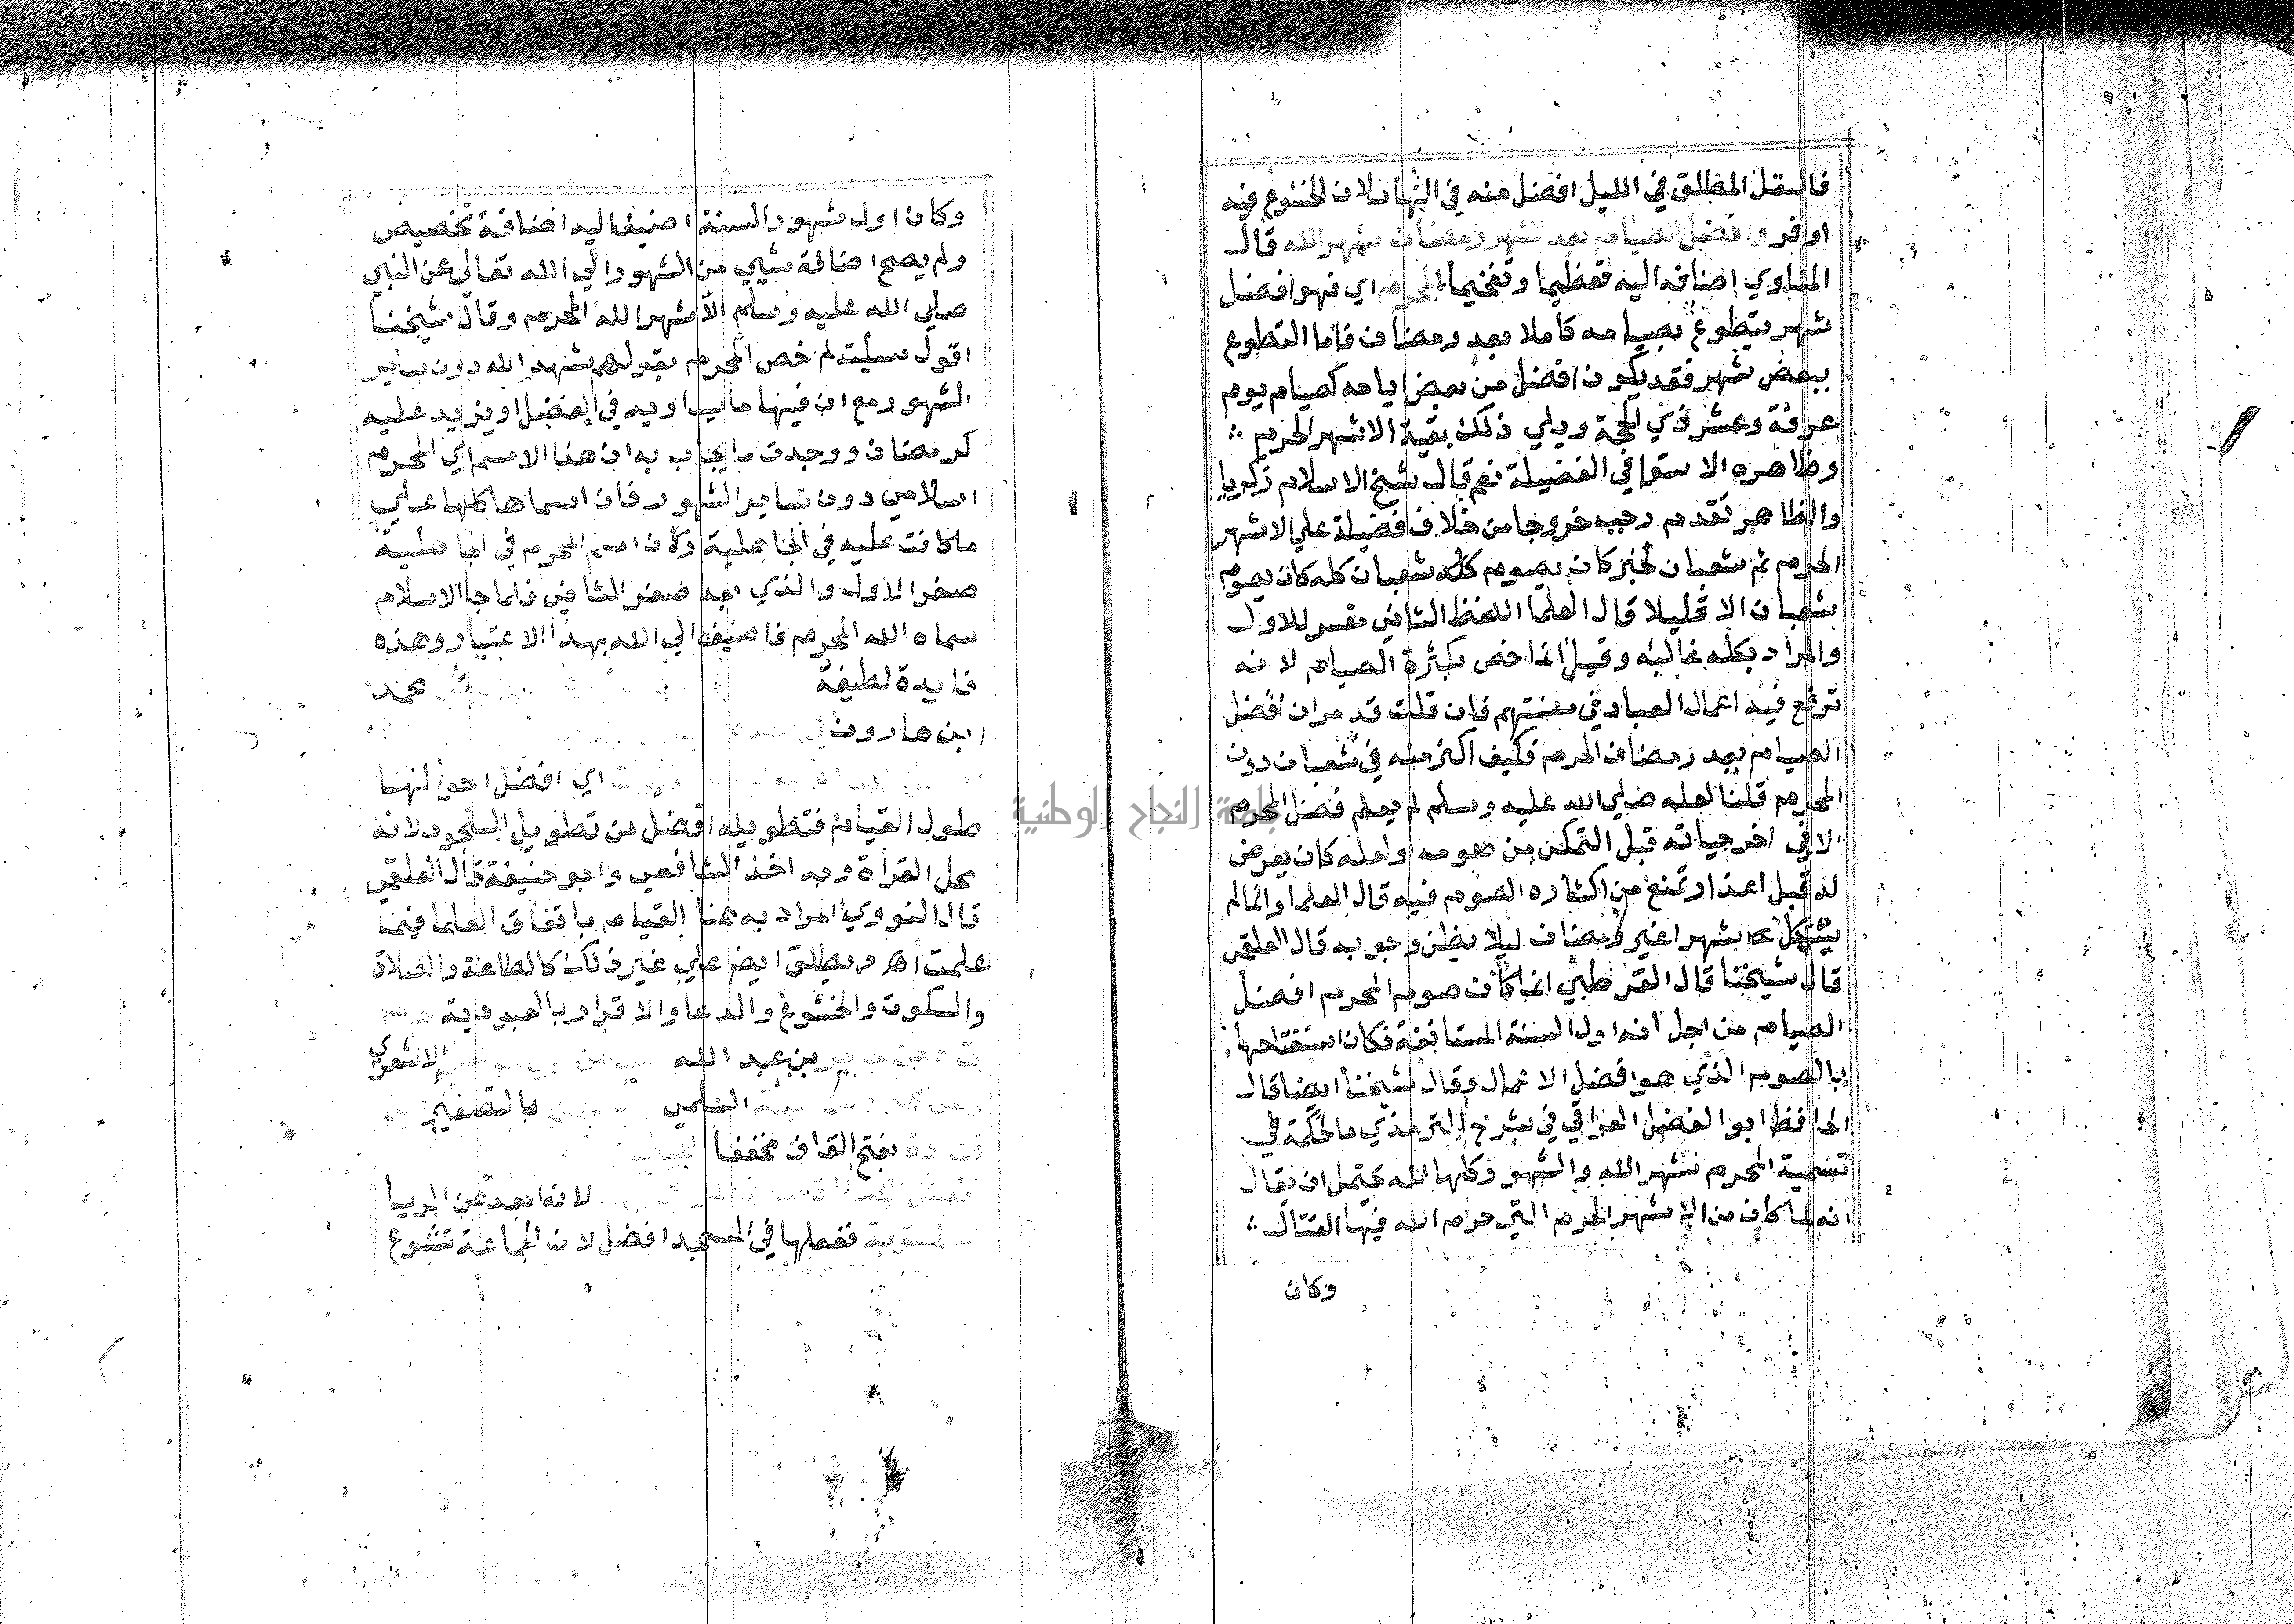 فالنفل المطلق في الليل افضل منه في النهار لان الخشوع فيه
اوفر وافضل الصيام بعد شهر رمضان شهر الله قال
المناوي اضافه اليه تعظيما وتفخيما المحرم اي فهو افضل
شهر يتطوع بصيامه كاملا بعد رمضان فاما التطوع
ببعض شهر فقد يكون افضل من بعض ايامه كصيام يوم
عرفة وعشر ذي الحجة ويلي ذلك بقية الاشهر الحرم
وظاهره الاستوا في الفضيلة نعم قال شيخ الاسلام زكريا
والظاهر تقدم رجب خروجا من خلاف فضيلة علي الاشهر
الحرم ثم شعبان لخبر كان يصوم شعبان كله كان يصوم
شعبان الا قليلا قال العلما اللفظ الثاني مفسر للاول
والمراد بكله غالبه وقيل انما خص بكثرة الصيام لانه
ترفع فيه اعمال العباد في سنتهم فان قلت قد مر ان افضل
الصيام بعد رمضان المحرم فكيف اكثر منه في شعبان دون
المحرم قلنا لعله صلي الله عليه وسلم لم يعلم فضل المحرم
الا في اخر حياته قبل التمكن من صومه او لعله كان يعرض
له قبل اعذار تمنع من اكثاره الصوم فيه قال العلما وانما لم
يستكمل شهرا غير رمضان ليلا يظن وجوبه قال العلقمي
قال شيخنا قال القرطبي انما كان صوم المحرم افضل
الصيام من اجل انه اول السنة المستانفة فكان استفتاحها
بالصوم الذي هو افضل الاعمال وقال شيخنا ايضا قال
الحافظ ابو الفضل العراقي في شرح الترمذي ما الحكمة في
تسمية المحرم شهر الله والشهور كلها لله يحتمل ان يقال
انه لما كان من الاشهر الحرم التي حرم الله فيها القتال
وكان
وكان اول شهور السنة اضيف اليه اضافة تخصيص
ولم يصح اضافة شيي من الشهور الي الله تعالى عن النبي
صلي الله عليه وسلم الا شهر الله المحرم وقال شيخنا
اقول سيلت لم خص المحرم بقولهم شهر الله دون ساير
الشهور مع ان فيها ما يساويه في الفضل او يزيد عليه
كرمضان ووجدت ما يجاب به ان هذا الاسم اي المحرم
اسلامي دون ساير الشهور فان اسماها كلها علي
ما كانت عليه في الجاهلية وكان اسم المحرم في الجاهلية
صفر الاول والذي بعد صفر الثاني فلما جا الاسلام
سماه الله المحرم فاضيف الي الله بهذا الاعتبار وهذه
فايدة لطيفة محمد
ابن هارون
اي افضل احوالها
طول القيام فتطويله افضل من تطويل السجود لانه
محل القراة وبه اخذ الشافعي وابو حنيفة قال العلقمي
قال النووي المراد به هنا القيام باتفاق العلما فيما
علمت اهـ ويطلق ايضا علي غير ذلك كالطاعة والصلاة
والسكوت والخشوع والدعا والاقرار بالعبودية
بن عبد الله الاشعري
بالتصغير
قتادة بفتح القاف مخففا
لانه ابعد عن الريا
المكتوبة ففعلها في المسجد افضل لان الجماعة تشرع
جامعة النجاح الوطنية